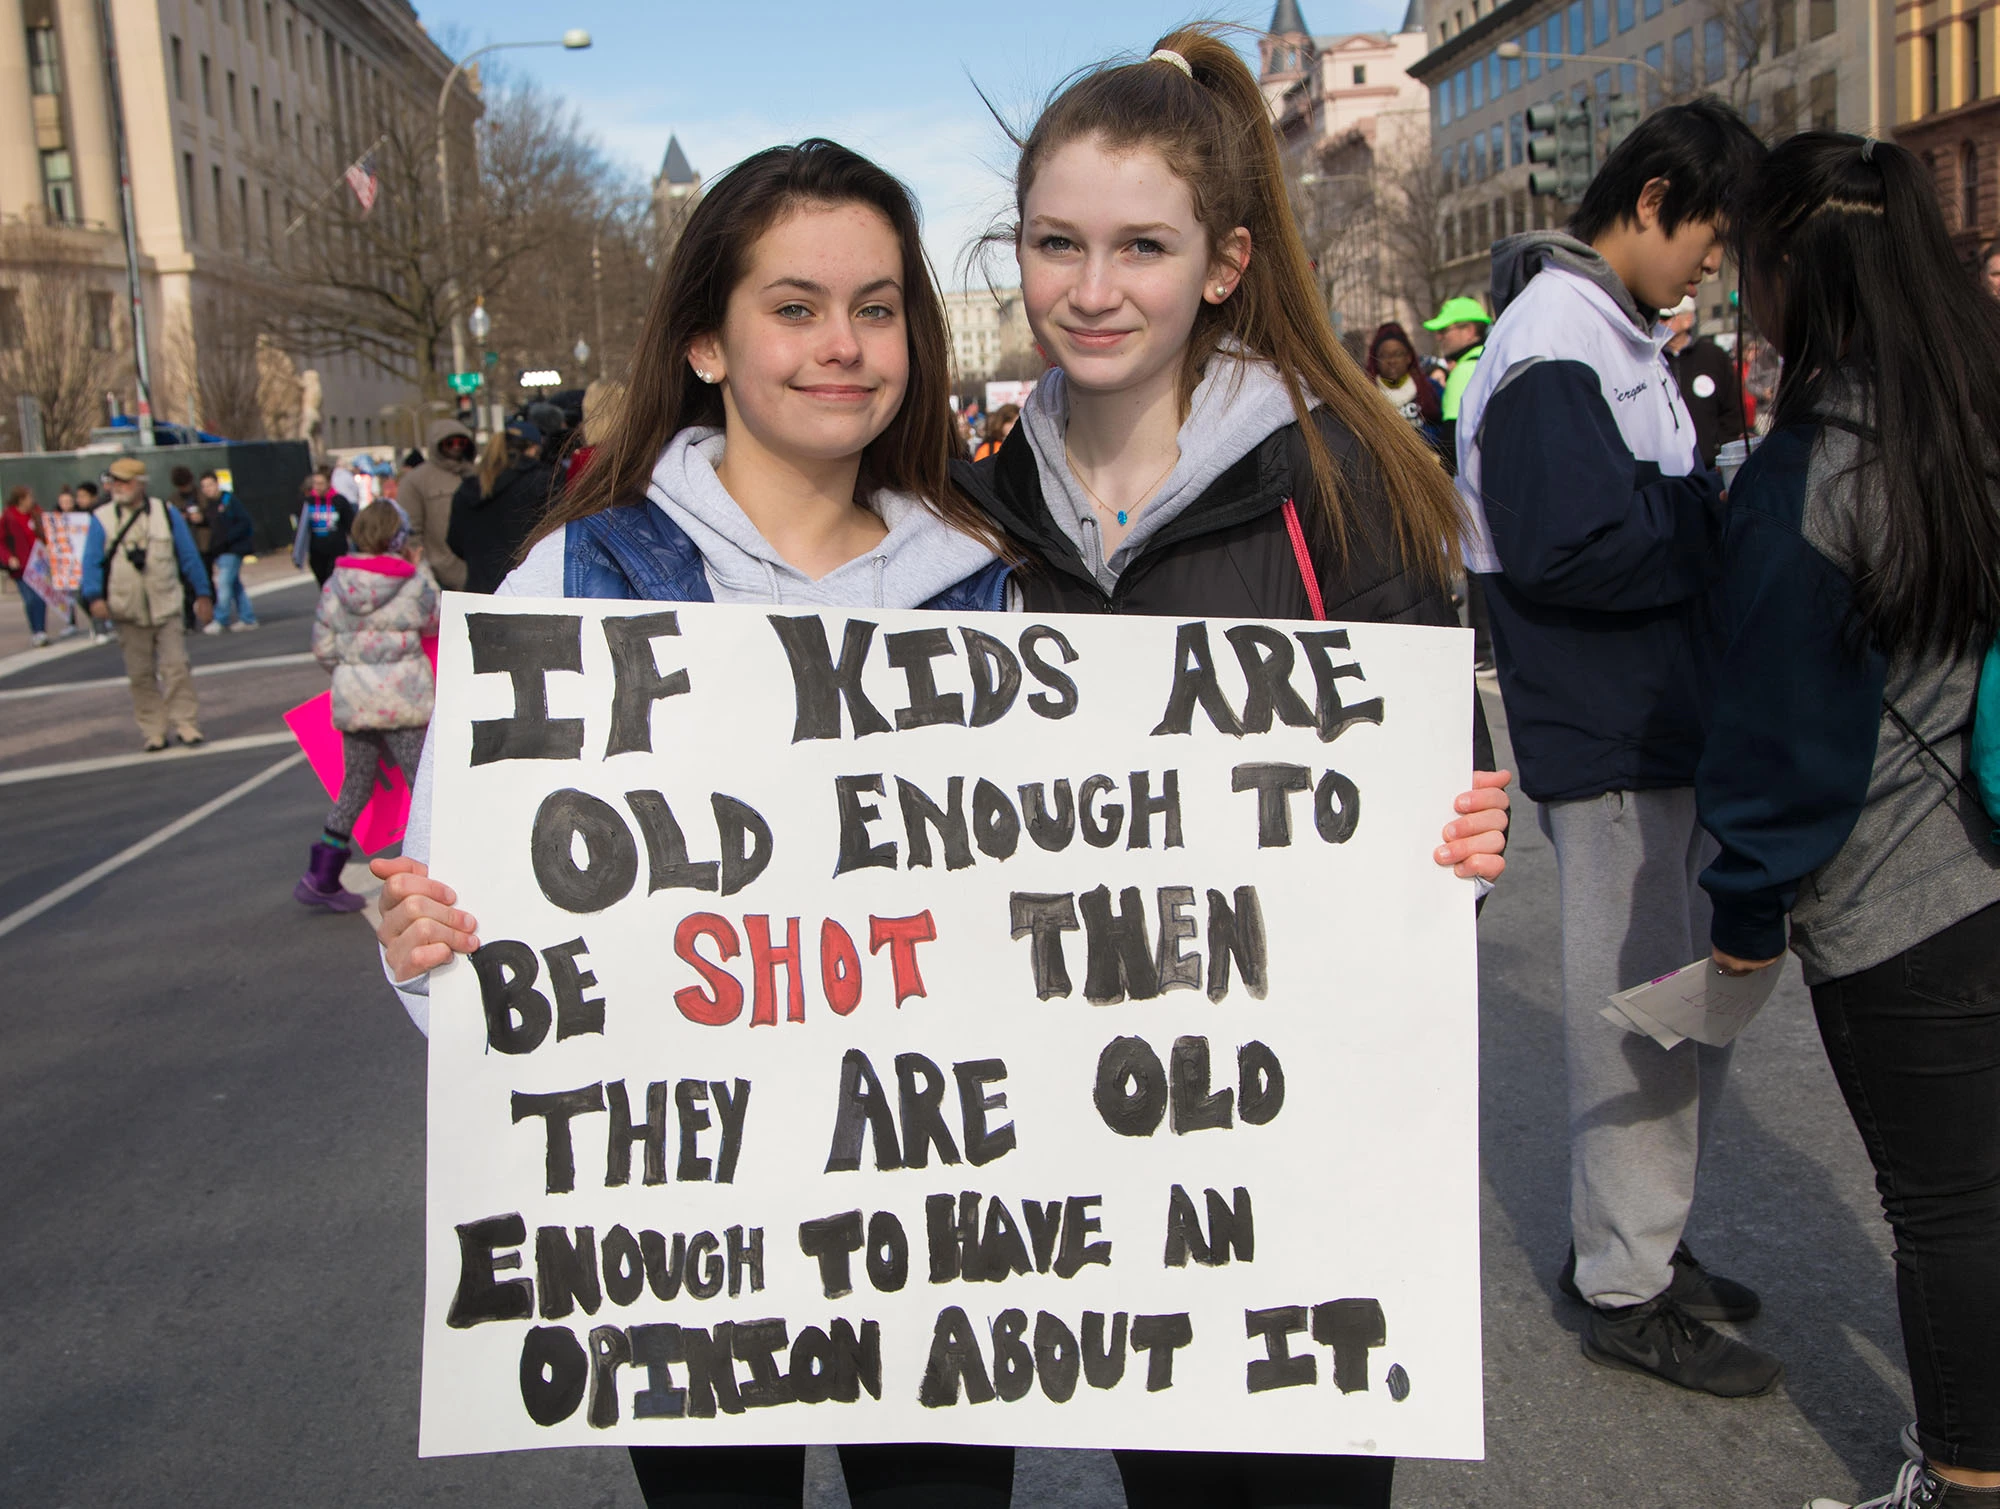 IF KIDS ARE
OLD ENOUGH TO
BE SHOT THEN
THEY ARE OLD
ENOUGH TO HAVE AN
OPINION ABOUT IT.